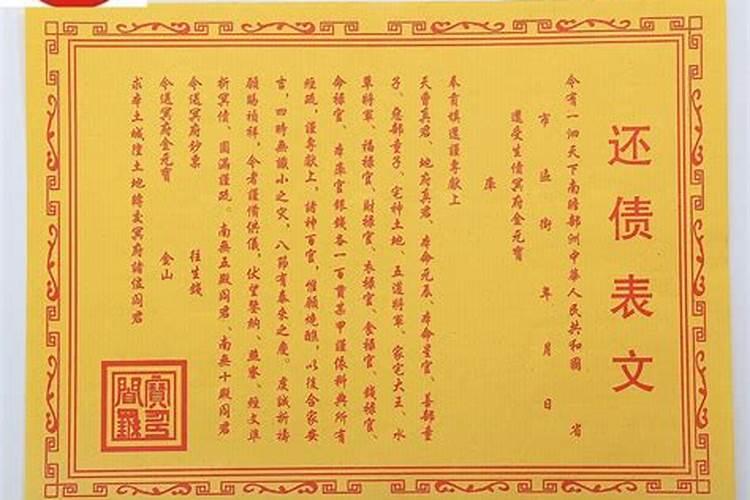 还债表文
今有一泗天下南瞻部洲中華人民共和國 省
市 區 街 年 月 日
還受生債冥府金元寶
庫
奉背填還謹專獻上
天曹真君、地府真君、本命元辰、本命星官、善部童
子、惡部童子、宅神土地、五道將軍、家宅大王、水
草將軍、福禄官、財禄官、衣禄官、食禄官、錢禄官、
命禄官、本庫官銀錢各一百貫某甲謹依科典所有
經疏，謹專獻上，諸神百官，惟願燒醮，以後合家安
吉，四時無讖小之灾，八節有泰來之慶。虔誠祈禱
願賜禎祥，今者謹備供儀，伏望鑒納、燕寮、經文準
折冥債、圓滿謹疏。南無五殿阎君、南無十殿阎君
今送冥府鈔票 往生錢
今送冥府金元寶 金山
求本土城隍土地轉交冥府諸位阎君